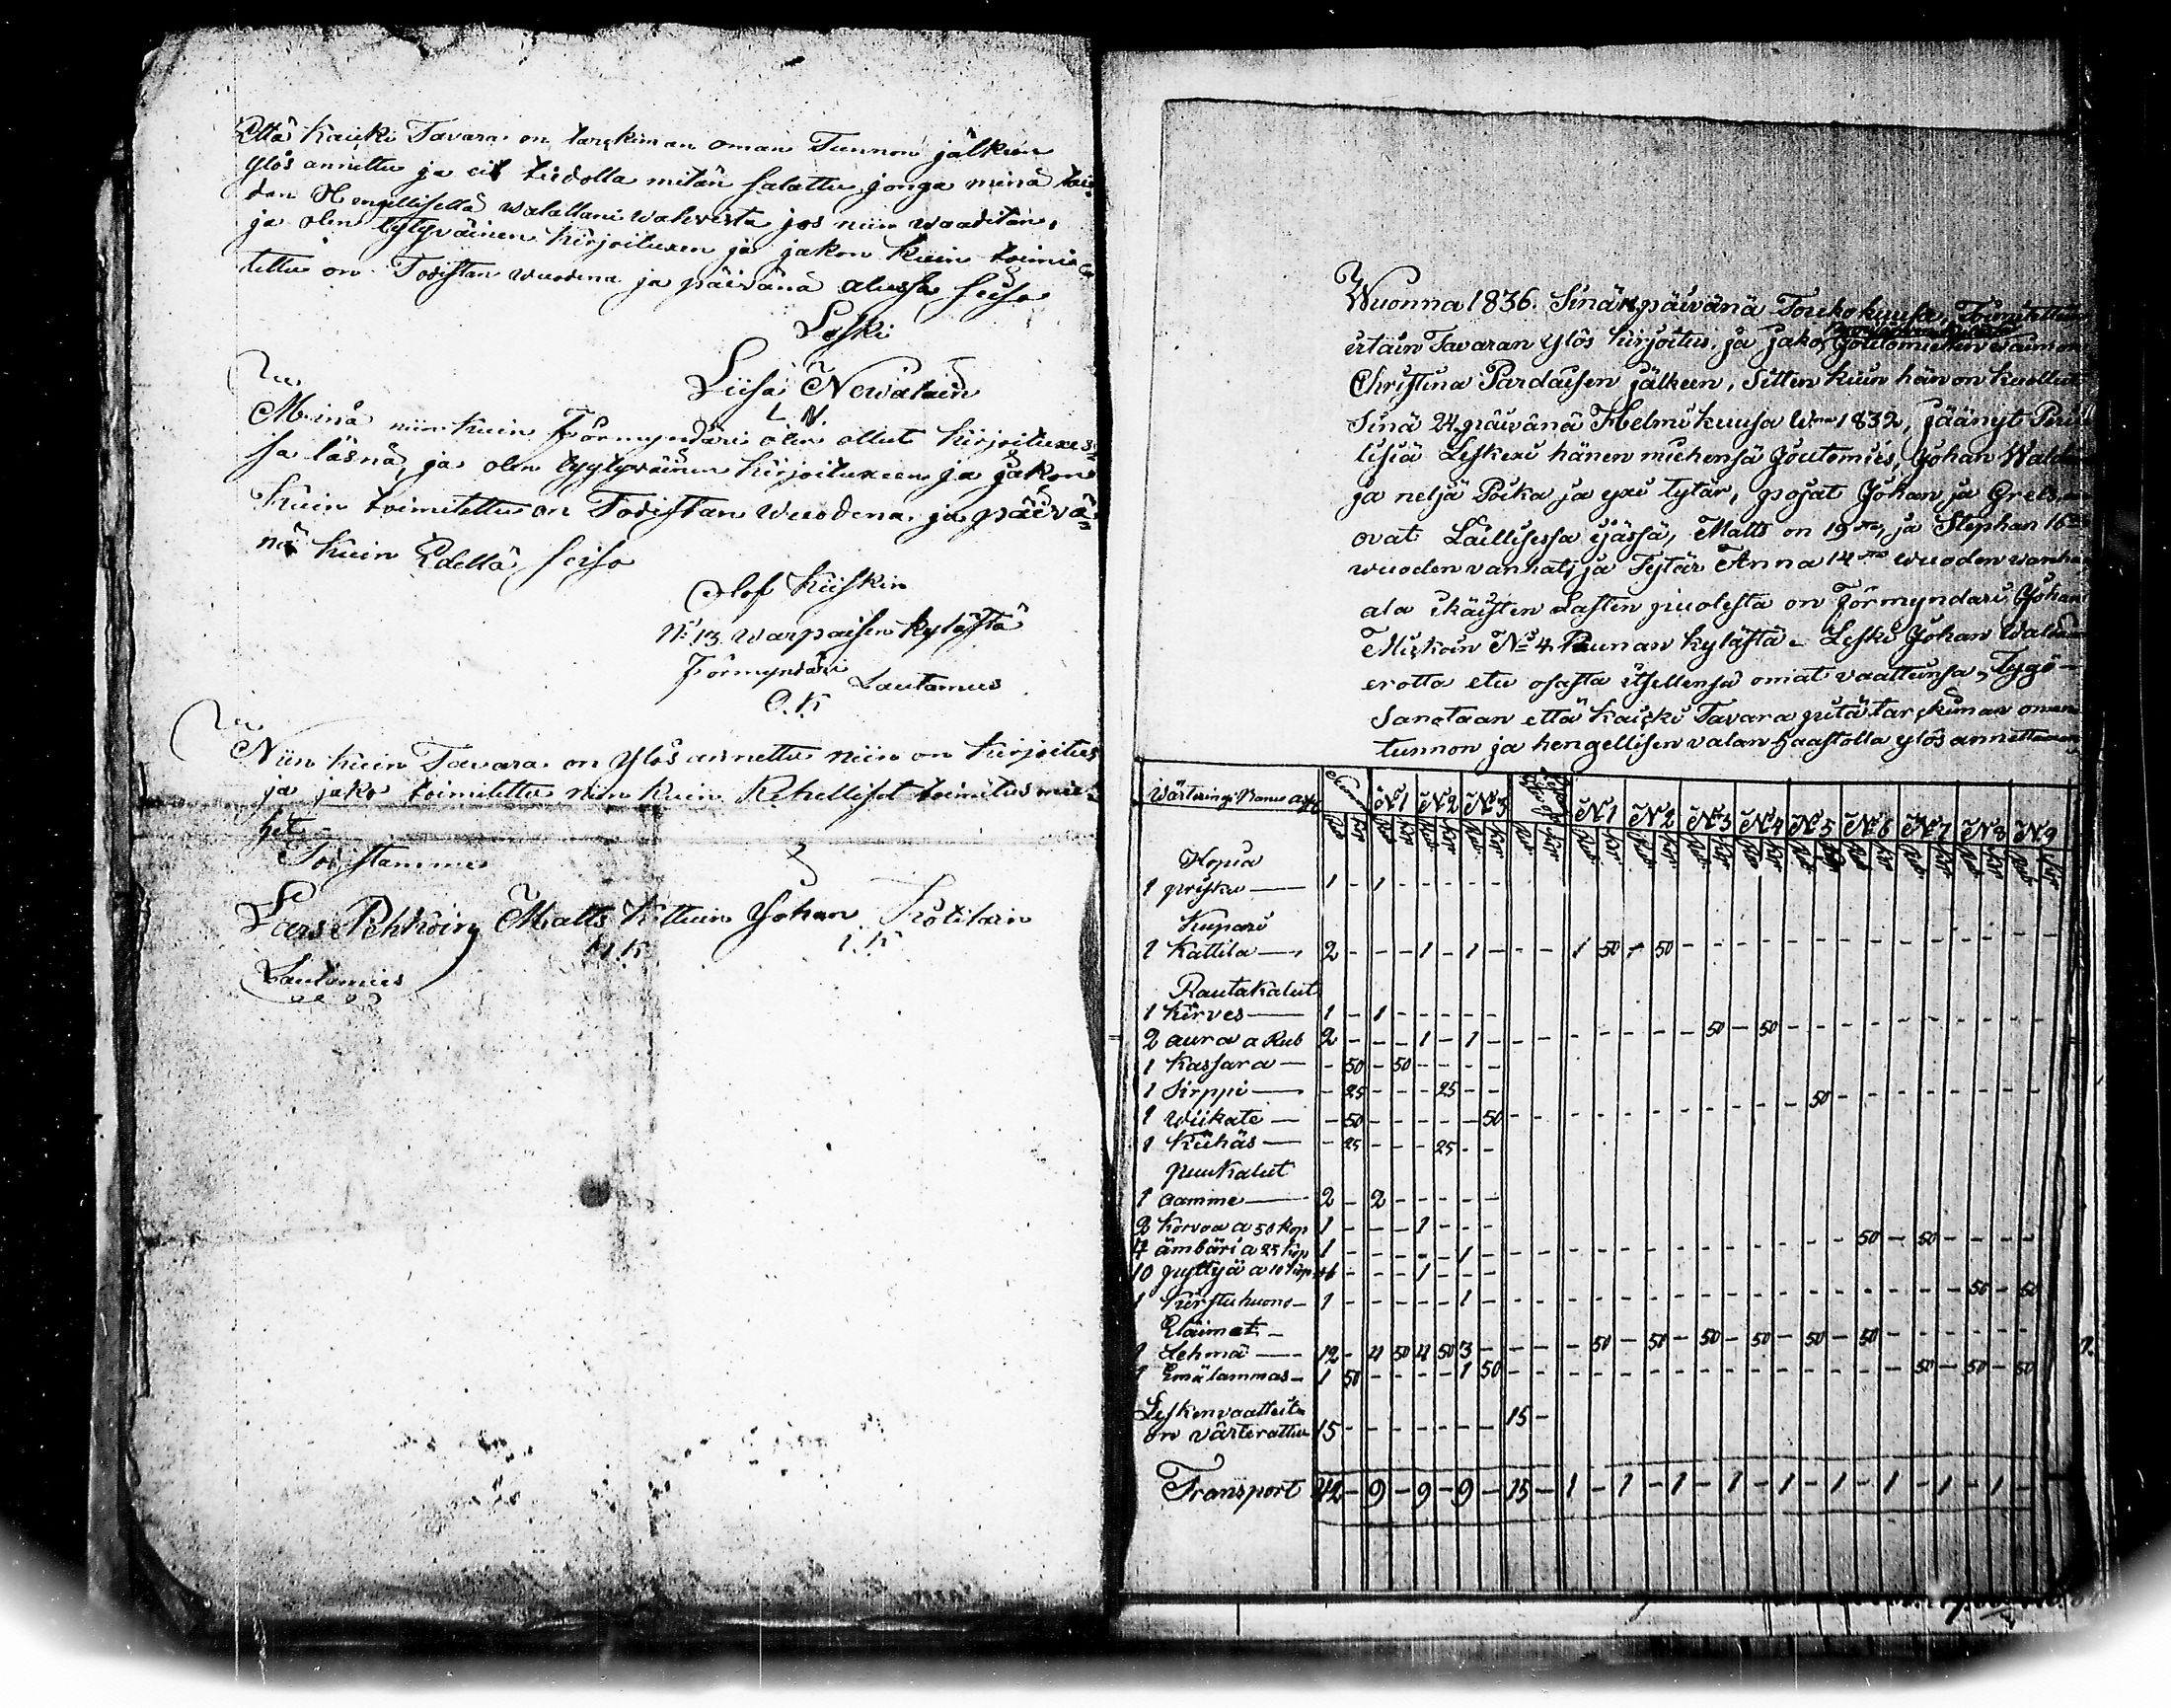 Että kaicki Tavara on tarckiman oman Tunnon jälken
ylös annettu ja eit tiedolla mitän salattu jonga minä tai-
dan Hengellisellä walallani wahvista jos niin waaditan,
ja olen tytyväinen kirjoituxen ja jakon kuin toimi-
tettu on Todistan wuodena ja päivänä alussa seiso
Leski
Liisa Newalain
L. N.
Minä niinkuin Förmyndäri olen ollut kirjoituxes-
sa läsnä, ja olen tyytyväinen kirjoituxeen ja jakon
kuin toimitettu on Todistan wuodena ja päivä-
nä kuin Edellä seiso
Olof Kiiskin
N:o 13. warpaisen kylästä
Förmyndäri Lautamies
O. K
Niin kuin Tavara on ylös annettu niin on kirjoitus
ja jako toimitettu niin kuin Rehelliset toimitus mie-
het
Todistamme
Lars Pehkoin Matts Kettuin Johan Kotilain
M. K I. K
Lautamies
Wuonna 1836. Sinä päivänä Toukokuusa, Toimitettiin
ertäin Tavaran ylös kirjoitus ja jako, waimon
Christina Pardaisen jälkeen, sitten kuin hän on kuollut
Sinä 24 päivänä Helmikuusa Wna 1832, jäänyt Peril-
lisiä Leskexi hänen miehensä Joutomies, Johan Walda
ja neljä Poika ja yxi tytär, pojat Johan ja Grels
ovat Laillisessa ijässä, Matts on 19sta ja Stephan 16sta
wuoden vanhat, ja Tytär Anna 14sta wuoden wanha
ala ikäisten Lasten puolesta on Förmyndäri Johan
Mickoin No 4 Paunan kylästä. Leski Johan Walda
erotta etu osasta itsellensä omat vaattensa, Tygö-
Sanotaan että kaicki Tavara pitä tarckiman oman
tunnon ja hengellisen valan haastolla ylös annettaman
Wärteringi Banco N1 N2 N3 N1 N2 N3 N4 N5 N6 N7 N8 N9
Hopia
1 prisku — 1 - 1 - - - - -
Kupari
1 Kattila — 2 - - - 1 - 1 - - - 1 50 1 50
Rautakalut
1 kirves — 1 - 1 - - - - -
2 aura a Rub 2 - - - 1 - 1 - - - - - - - - 50 - 50
1 Kassara — - 50 - 50 - - - -
1 Sirppi — - 25 - - - 25 - -
1 wiikate — - 50 - - - - - 50 - - - - - - - - - - - 50
1 Kiihäs — - 25 - - - 25 - -
puukalut
1 aamme — 2 - 2 - - - - -
2 korvoa a 50 kop 1 - - - 1 - - -
4 ämbäri a 25 kop 1 - - - - - 1 - - - - - - - - - - - - - - 50 - 50
10 pyttyä a 10 kop 1 - - - 1 - - -
1 kirstu huono — 1 - - - - - 1 - - - - - - - - - - - - - - - - - - 50 - 50
Eläimet
1 Lehmä — 12 - 4 50 4 50 3 - - - - 50 - 50 - 50 - 50 - 50 - 50
1 Emälammas — 1 50 - - - - 1 50 - - - - - - - - - - - - - - - 50 - 50 - 50
Lesken vaatteita
on värterattu 15 - - - - - - - 15 -
Transport 42 - 9 - 9 - 9 - 15 - 1 - 1 - 1 - 1 - 1 - 1 - 1 - 1 - 1 -